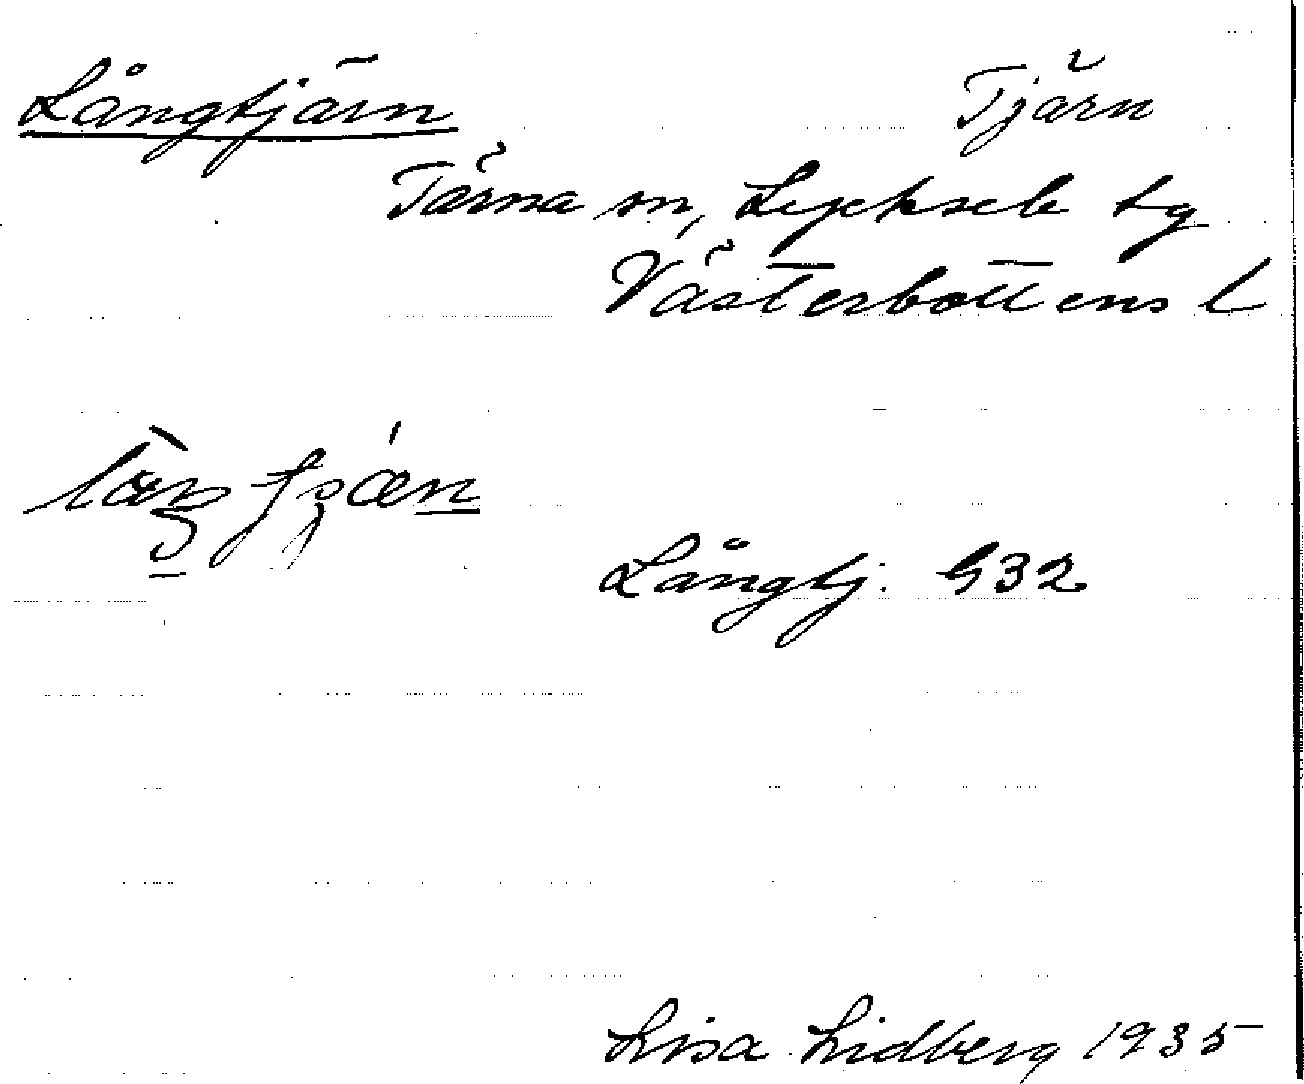 Långtjärn Tjärn
Tärna sn, Lycksele tg
Västerbottens l
Långtj. G32
Lisa Lidberg 1935